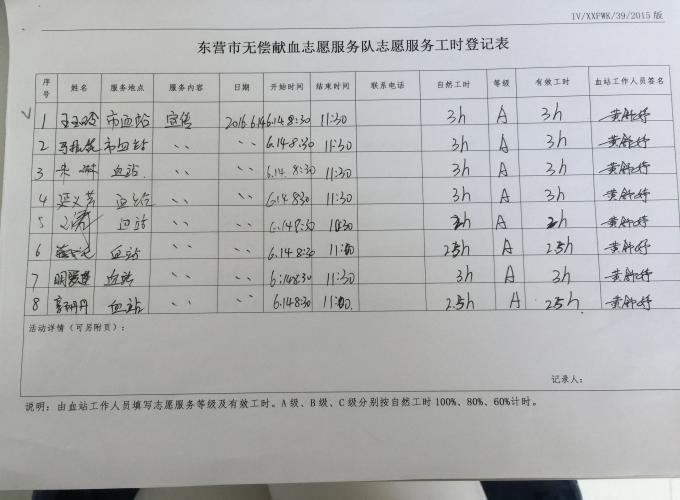 IV/XXFWK/39/2015 版
东营市无偿献血志愿服务队志愿服务工时登记表
序号 姓名 服务地点 服务内容 日期 开始时间 结束时间 联系电话 自然工时 等级 有效工时 血站工作人员签名
1 王玉玲 市血站 宣传 2016.6.14 6.14 8:30 11:30 3h A 3h 黄舒婷
2 市血站 〃 〃 6.14 8:30 11:30 3h A 3h 黄舒婷
3 朱琳 血站 〃 〃 6.14 8:30 11:30 3h A 3h 黄舒婷
4 血站 〃 〃 6.14 8:30 11:30 3h A 3h 黄舒婷
5 血站 〃 〃 6.14 8:30 A 黄舒婷
6 血站 〃 〃 6.14 8:30 11:00 2.5h A 2.5h 黄舒婷
7 血站 〃 〃 6.14 8:30 11:30 3h A 3h 黄舒婷
8 血站 〃 〃 6.14 8:30 11:00 2.5h A 2.5h 黄舒婷
活动详情（可另附页）：
记录人：
说明：由血站工作人员填写志愿服务等级及有效工时。A 级、B 级、C 级分别按自然工时 100%、80%、60%计时。